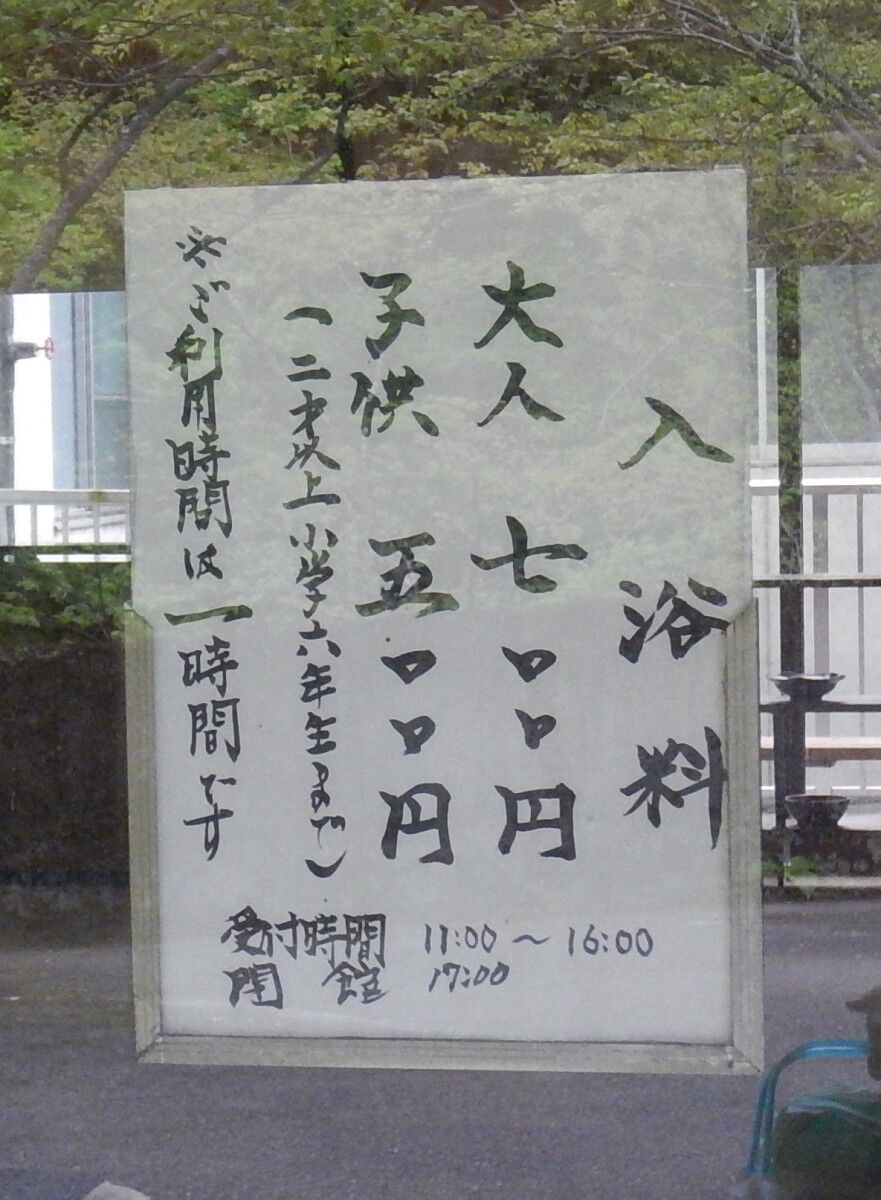 入浴料
大人 七〇〇円
子供 五〇〇円
(二才以上小学六年生まで)
※ご利用時間は一時間です
受付時間 11:00～16:00
閉館 17:00